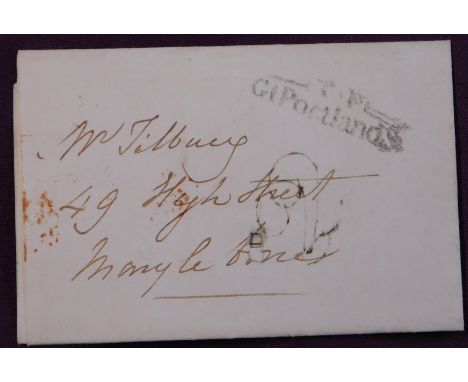 T.P
Gt Portland S
Mr Tilbury
49 High Street
Mary le bone